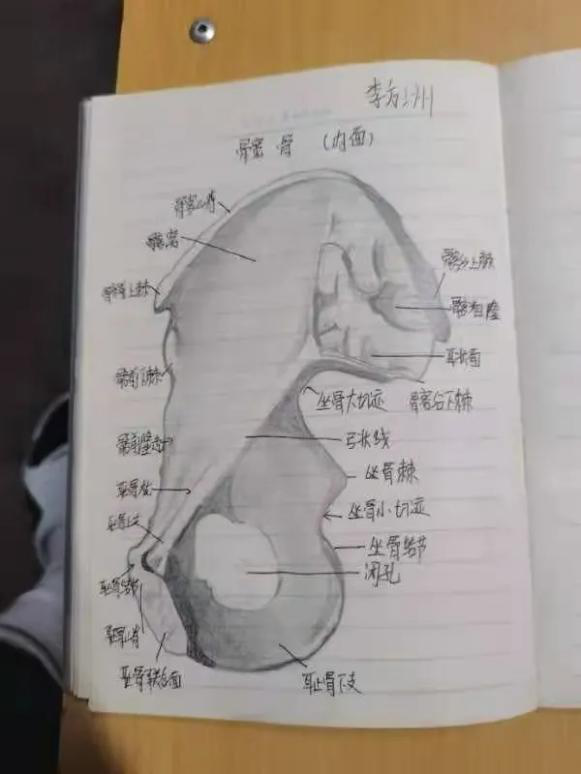 髋骨（内面）
髂窝
髂前上棘
髂前下棘
耻骨上支
耻骨结节
耻骨联合面
髂后上棘
髂粗隆
耳状面
坐骨大切迹
髂后下棘
弓状线
坐骨棘
坐骨小切迹
坐骨结节
闭孔
耻骨下支